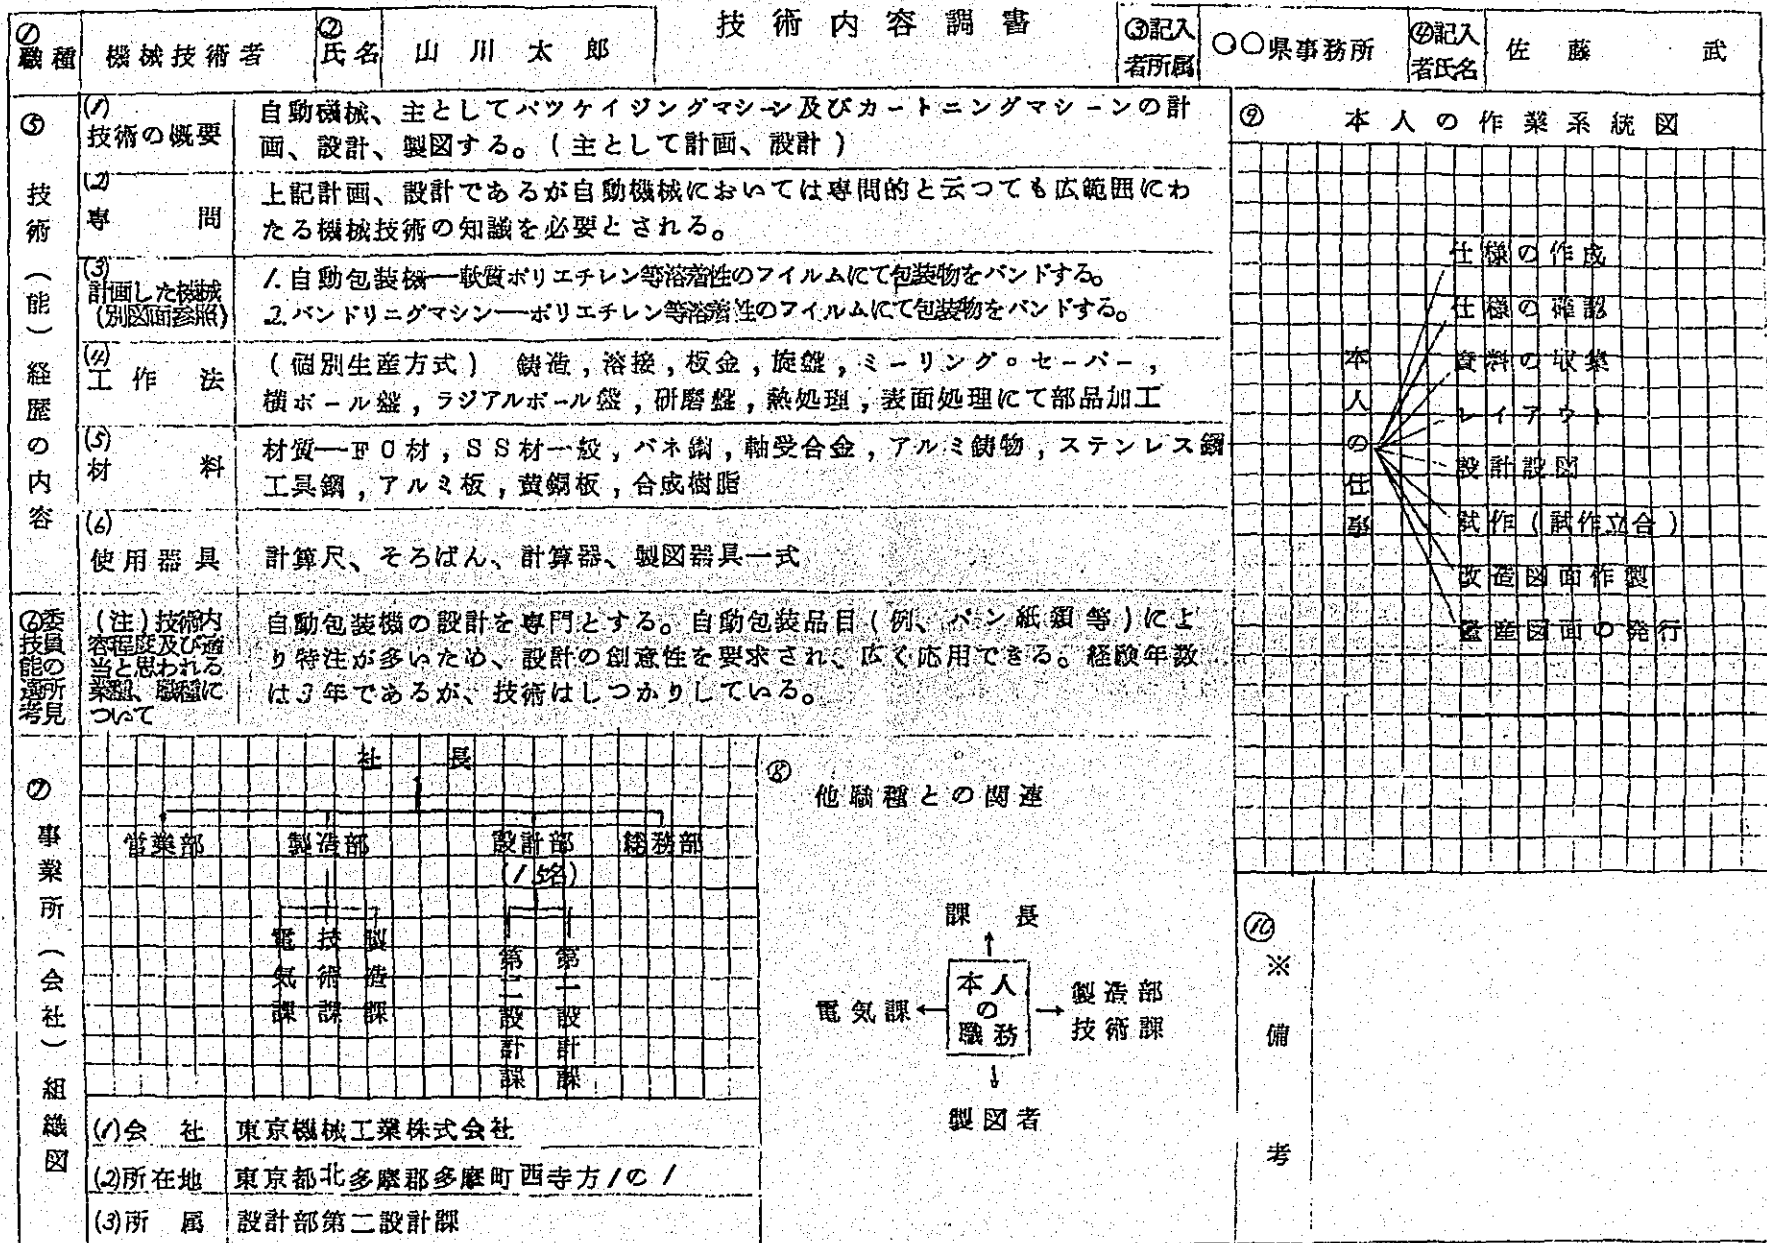 技術内容調書
①職種 機械技術者 ②氏名 山川太郎 ③記入者所属 〇〇県事務所 ④記入者氏名 佐藤 武
⑤技術(能)経歴の内容
(1)技術の概要
自動機械、主としてパツケイジングマシーン及びカートニングマシーンの計
画、設計、製図する。(主として計画、設計)
(2)専問
上記計画、設計であるが自動機械においては専問的と云つても広範囲にわ
たる機械技術の知識を必要とされる。
(3)計画した機械
(別図面参照)
1.自動包装機―軟質ポリエチレン等溶着性のフイルムにて包装物をバンドする。
2.バンドリニグマシン―ポリエチレン等溶着性のフイルムにて包装物をバンドする。
(4)工作法
(個別生産方式) 鋳造,溶接,板金,旋盤,ミーリング。セーパー,
横ボール盤,ラジアルボール盤,研磨盤,熱処理,表面処理にて部品加工
(5)材料
材質―FC材,SS材一般,バネ鋼,軸受合金,アルミ鋳物,ステンレス鋼
工具鋼,アルミ板,黄銅板,合成樹脂
(6)使用器具
計算尺、そろばん、計算器、製図器具一式
⑥技能選考委員の所見
(注)技術内
容程度及び適
当と思われる
業種、職種に
ついて
自動包装機の設計を専門とする。自動包装品目(例、パン紙類等)によ
り特注が多いため、設計の創意性を要求され、広く応用できる。経験年数
は3年であるが、技術はしつかりしている。
⑦事業所(会社)組織図
社長
営業部 製造部 設計部 総務部
(15名)
電気課 技術課 製造課
第二設計課 第一設計課
(1)会社 東京機械工業株式会社
(2)所在地 東京都北多摩郡多摩町西寺方1の1
(3)所属 設計部第二設計課
⑧他職種との関連
課長
↑
電気課←本人の職務→製造部
技術課
↓
製図者
⑨本人の作業系統図
本人の仕事
仕様の作成
仕様の確認
資料の収集
レイアウト
設計設図
試作(試作立合)
改造図面作製
量産図面の発行
⑩※備考